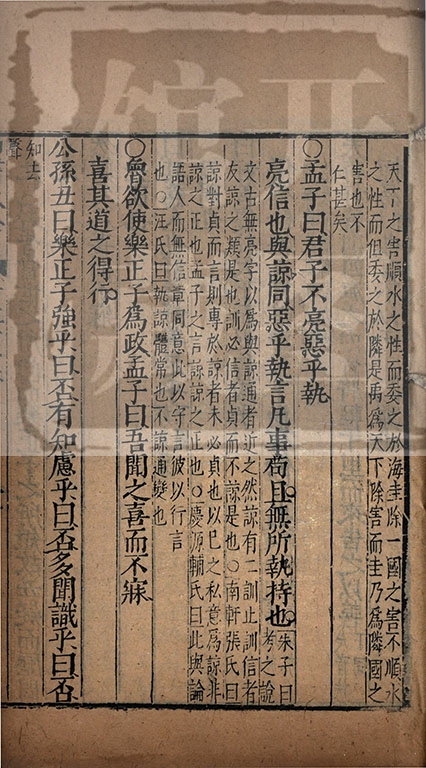 天下之害順水之性而委之於海圭除一國之害不順水
之性而但委之於隣是禹爲天下除害而圭乃爲隣國之
害也不
仁甚矣
○孟子曰君子不亮惡乎執
亮信也與諒同惡乎執言凡事苟且無所執持也朱子曰
考之說
文古無亮字以爲與諒通者近之然諒有二訓止訓信者
友諒之類是也訓必信者貞而不諒是也○南軒張氏曰
諒對貞而言則專於諒者未必貞也以己之私意爲諒非
諒之正也孟子之言諒諒之正也○慶源輔氏曰此與論
語人而無信章同意此以守言彼以行言
也○汪氏曰執諒體常也不諒通變也
○魯欲使樂正子爲政孟子曰吾聞之喜而不寐
喜其道之得行
公孫丑曰樂正子強乎曰否有知慮乎曰否多聞識乎曰否
知去
聲